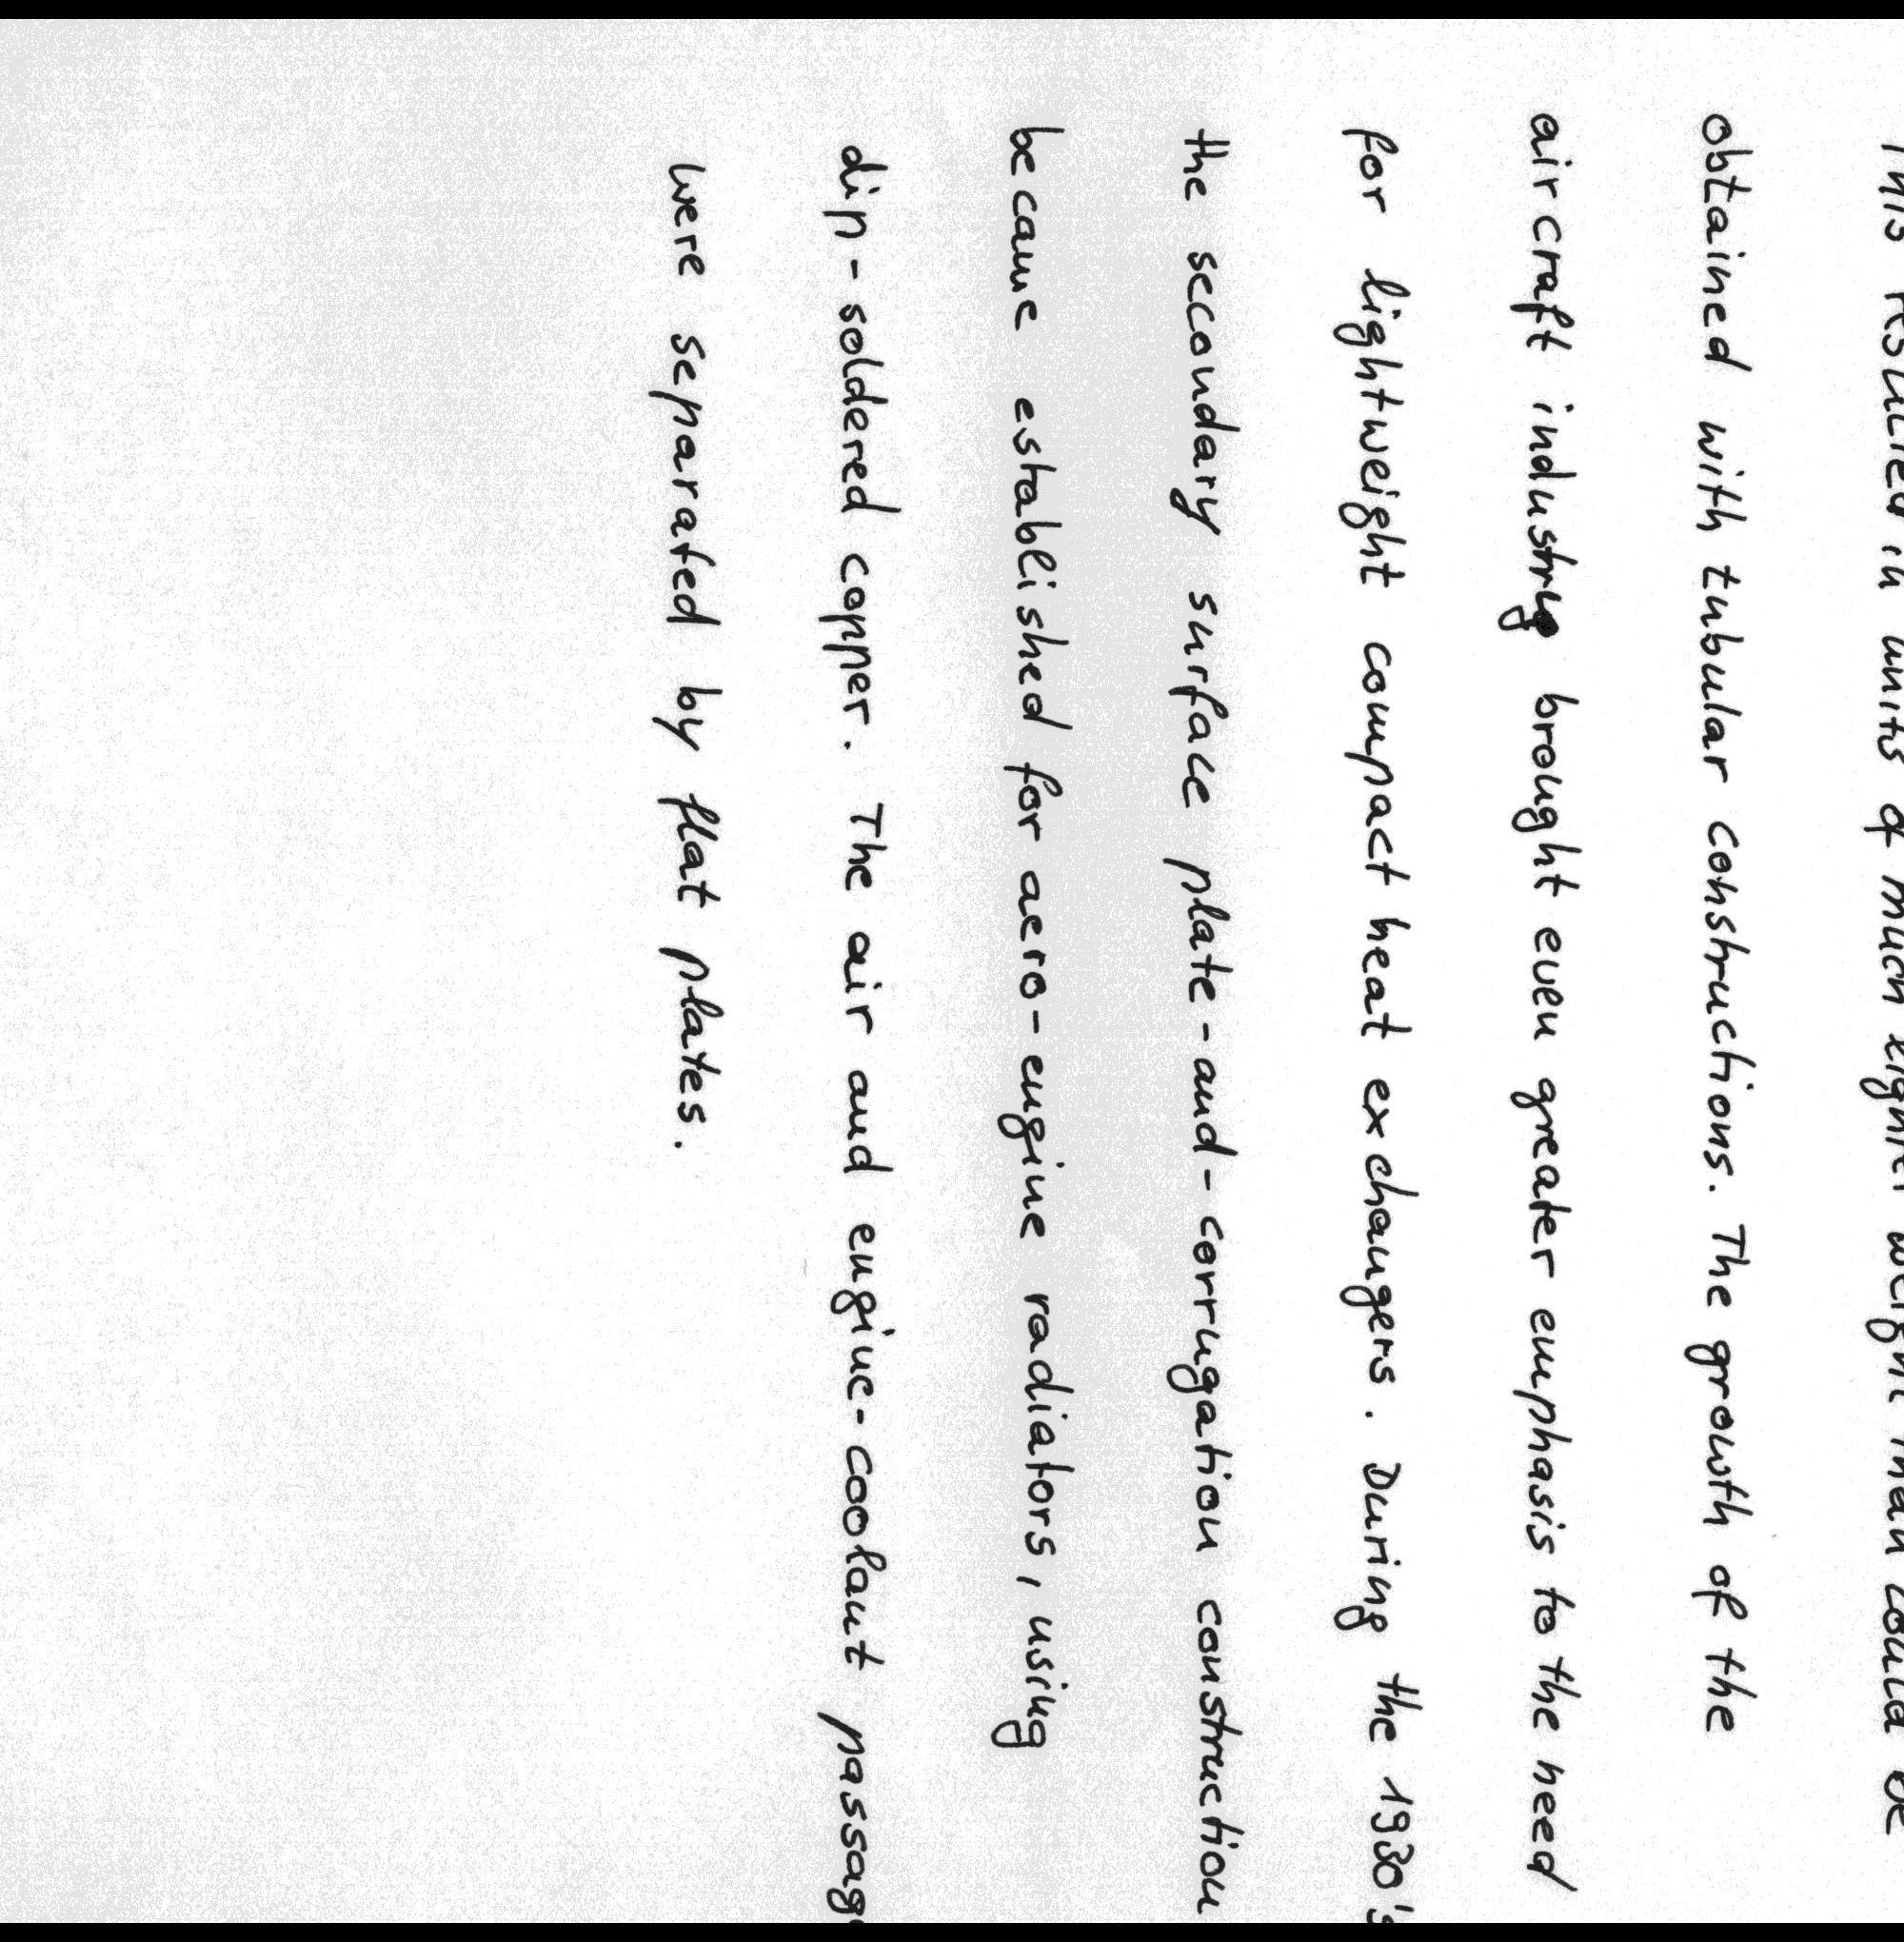 This resulted in units of much lighter weight than could be
obtained with tubular constructions. The growth of the
aircraft industry brought even greater emphasis to the need
for lightweight compact heat exchangers. During the 1930's
the secondary surface plate-and-corrugation construction
became established for aero-engine radiators, using
dip-soldered copper. The air and engine-coolant passag
were separated by flat plates.